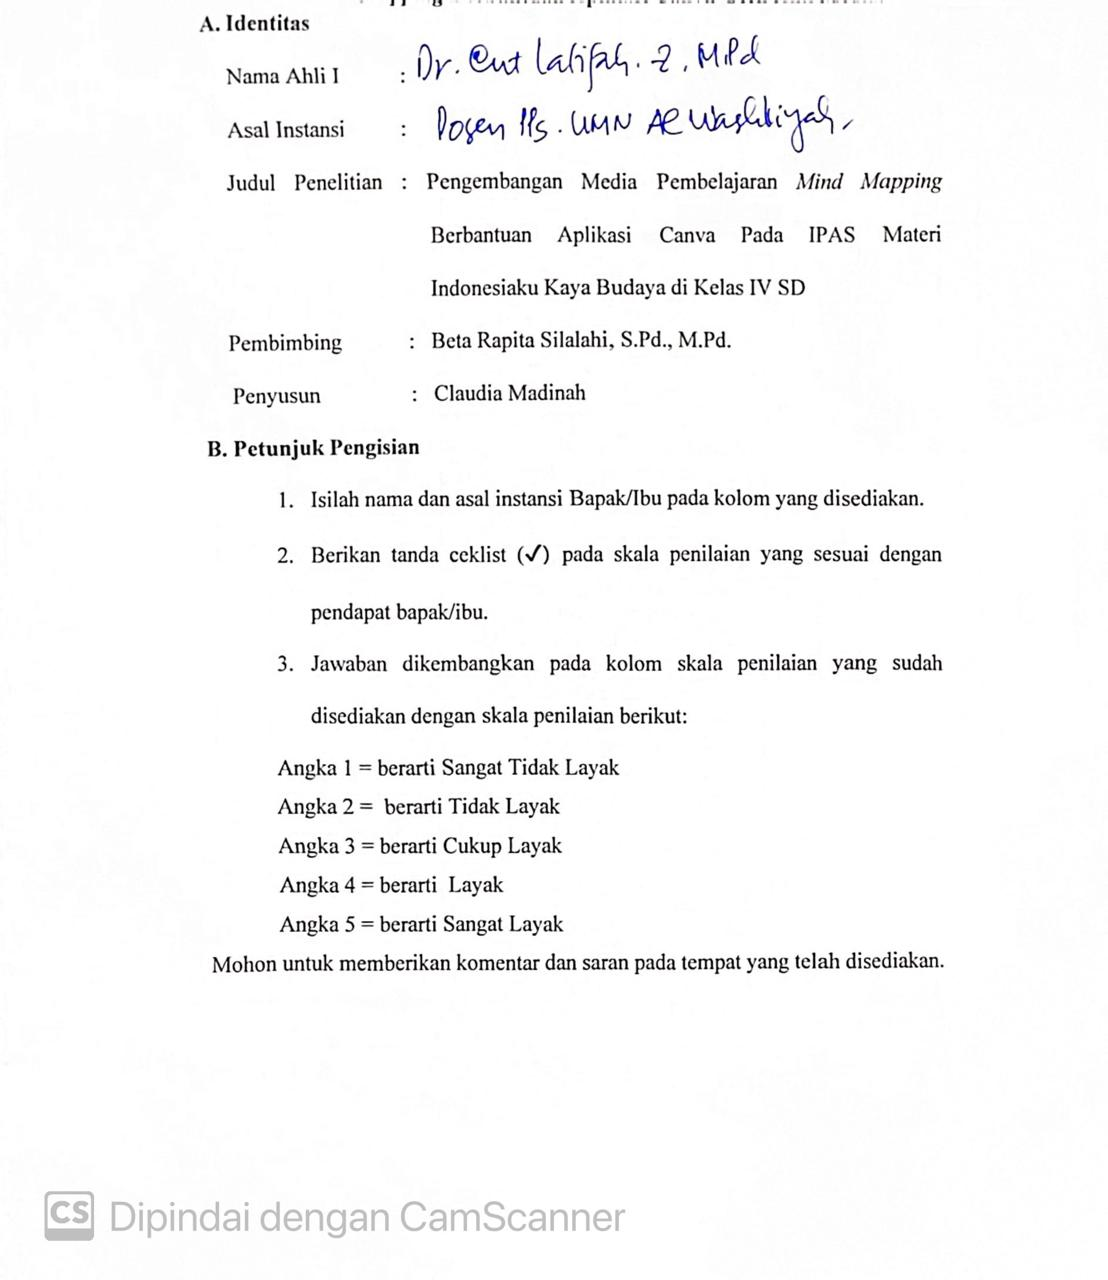 A. Identitas
Nama Ahli I : Dr. Cut Latifah. Z, M.Pd
Asal Instansi : Dosen IPS. UMN Al Washliyah
Judul Penelitian : Pengembangan Media Pembelajaran Mind Mapping
Berbantuan Aplikasi Canva Pada IPAS Materi
Indonesiaku Kaya Budaya di Kelas IV SD
Pembimbing : Beta Rapita Silalahi, S.Pd., M.Pd.
Penyusun : Claudia Madinah
B. Petunjuk Pengisian
1. Isilah nama dan asal instansi Bapak/Ibu pada kolom yang disediakan.
2. Berikan tanda ceklist (✓) pada skala penilaian yang sesuai dengan
pendapat bapak/ibu.
3. Jawaban dikembangkan pada kolom skala penilaian yang sudah
disediakan dengan skala penilaian berikut:
Angka 1 = berarti Sangat Tidak Layak
Angka 2 = berarti Tidak Layak
Angka 3 = berarti Cukup Layak
Angka 4 = berarti Layak
Angka 5 = berarti Sangat Layak
Mohon untuk memberikan komentar dan saran pada tempat yang telah disediakan.
CS Dipindai dengan CamScanner